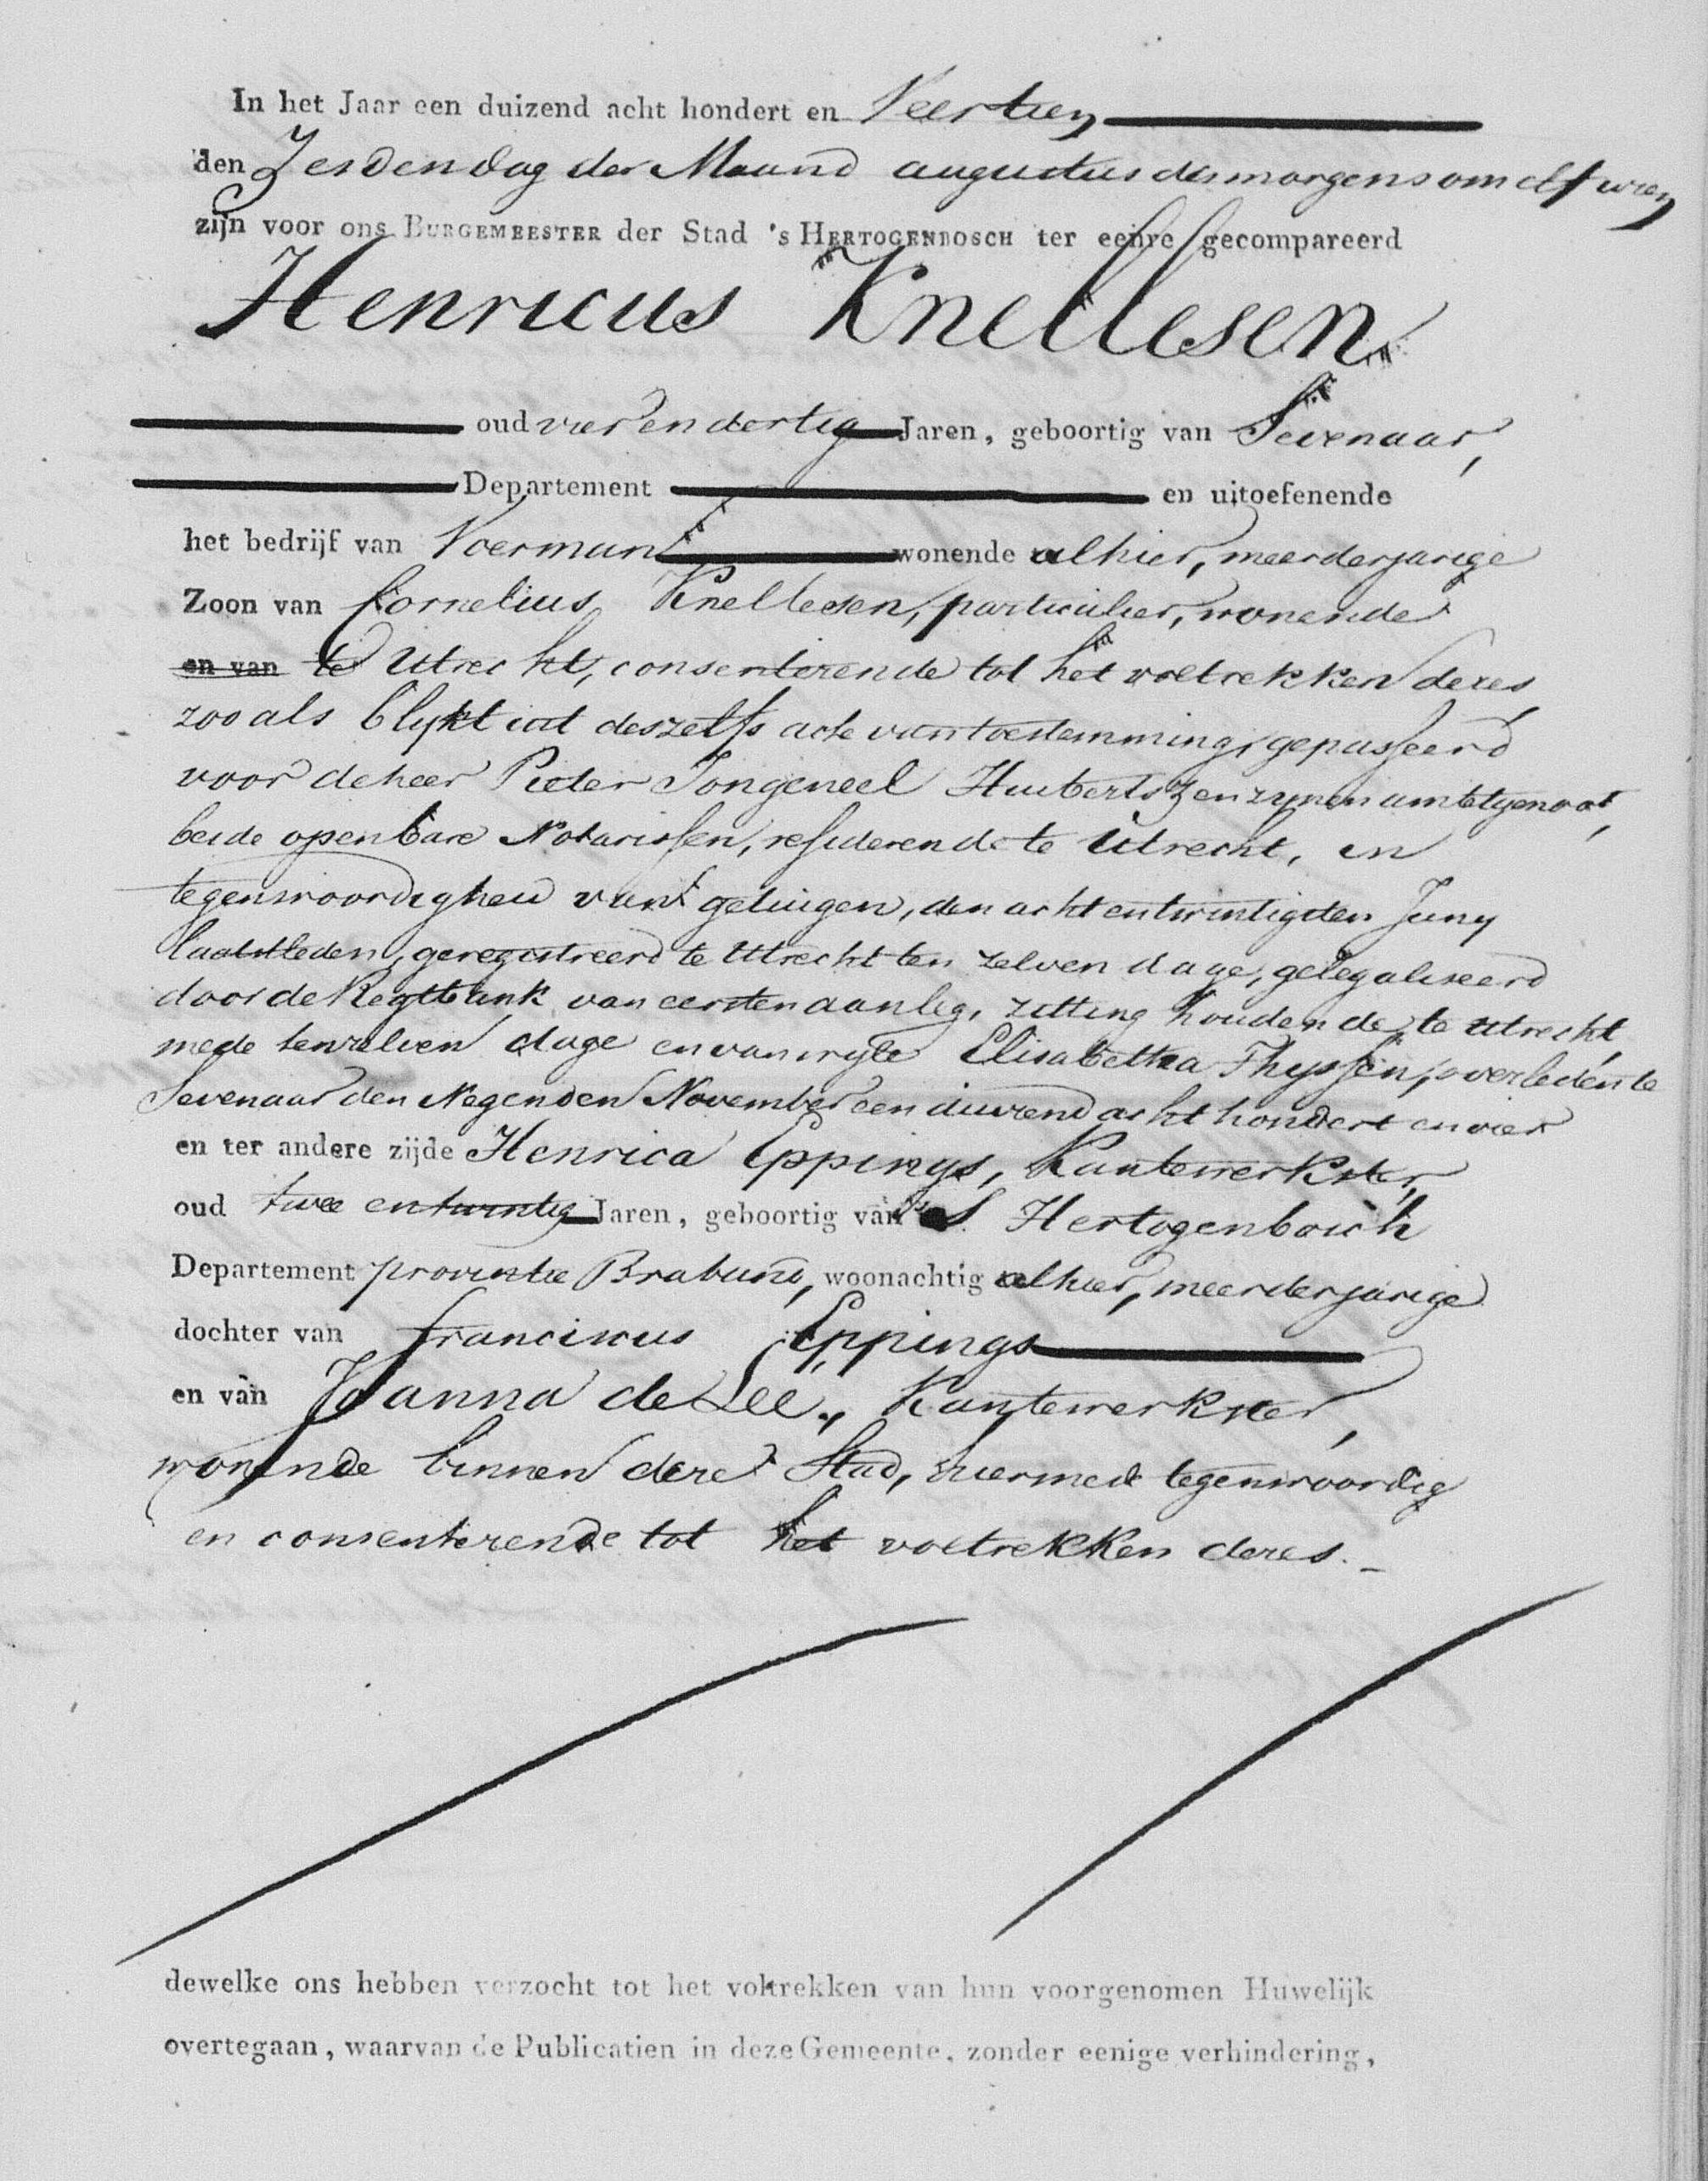 In het Jaar een duizend acht hondert en Veertien
den Zesden dag der Maand augustus des morgens om elf uren
zijn voor ons BURGEMEESTER der Stad 's HERTOGENBOSCH ter eenre gecompareerd
Henricus Knellesen
oud vier en dertig Jaren, geboortig van Sevenaar,
Departement en uitoefenende
het bedrijf van Voerman wonende alhier, meerderjarige
Zoon van Cornelius Knellesen, particulier, wonende
en van te Utrecht, consenterende tot het voltrekken dezes
zoo als blykt uit deszelfs acte van toestemming, gepasseerd
voor de heer Pieter Jongeneel Huibertsz en zynen amtetgenoot,
beide openbare Notarissen, resideerende te Utrecht, in
tegenwoordigheid van getuigen, den acht en twintigsten Juny
laatstleden, geregistreerd te Utrecht ten zelven dage, gelegaliseerd
door de Regtbank van eersten aanleg, zitting houdende te Utrecht
mede ten zelven dage en van wyle Elisabetha Thyssen, overleden te
Sevenaar den Negenden November een duizend acht hondert en vier
en ter andere zijde Henrica Eppings, Kantewerkster,
oud twee en twintig Jaren, geboortig van 's Hertogenbosch
Departement provintie Braband, woonachtig alhier, meerderjarige
dochter van Franciscus Eppings
en van Joanna de Lee, Kantewerkster,
wonende binnen deze Stad, hiermede tegenwoordig
en consenterende tot het voltrekken dezes.
dewelke ons hebben verzocht tot het voltrekken van hun voorgenomen Huwelijk
overtegaan, waarvan de Publicatien in deze Gemeente, zonder eenige verhindering,